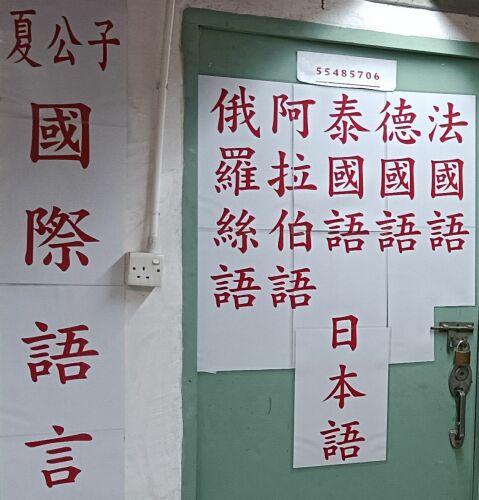 夏公子
國際語言
55485706
法國語
德國語
泰國語
阿拉伯語
俄羅絲語
日本語